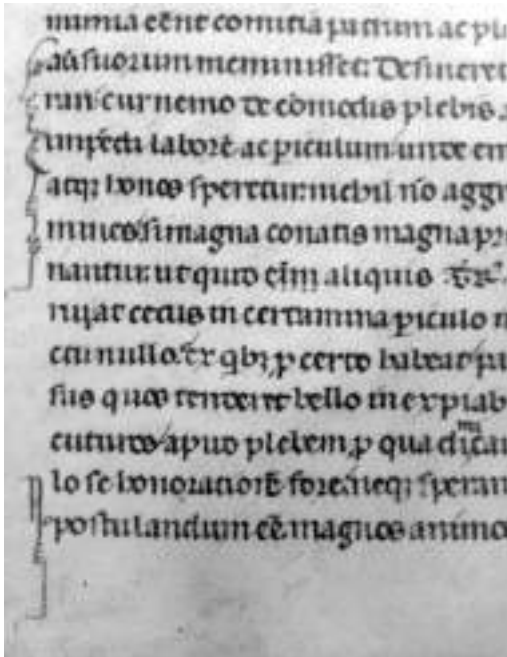 nimia eēnt comitia patrum ac pl
suorum meminisset. Desineret
rari cur nemo de cōmodis plebis
impēdi laborē ac piculum unde em
atq; honos speretur. nichil nō aggr
si magna conatis magna pr
nantur. ut quid aliquis
ruat cecus in certamina piculo
ctu nullo. ex qb; p certo habeat pa
sus quos tenderet bello inexpiab
cuturos apud plebem p qua dimicau
lo se honoratiorē fore. neq; speran
postulandum eē. magnos animos